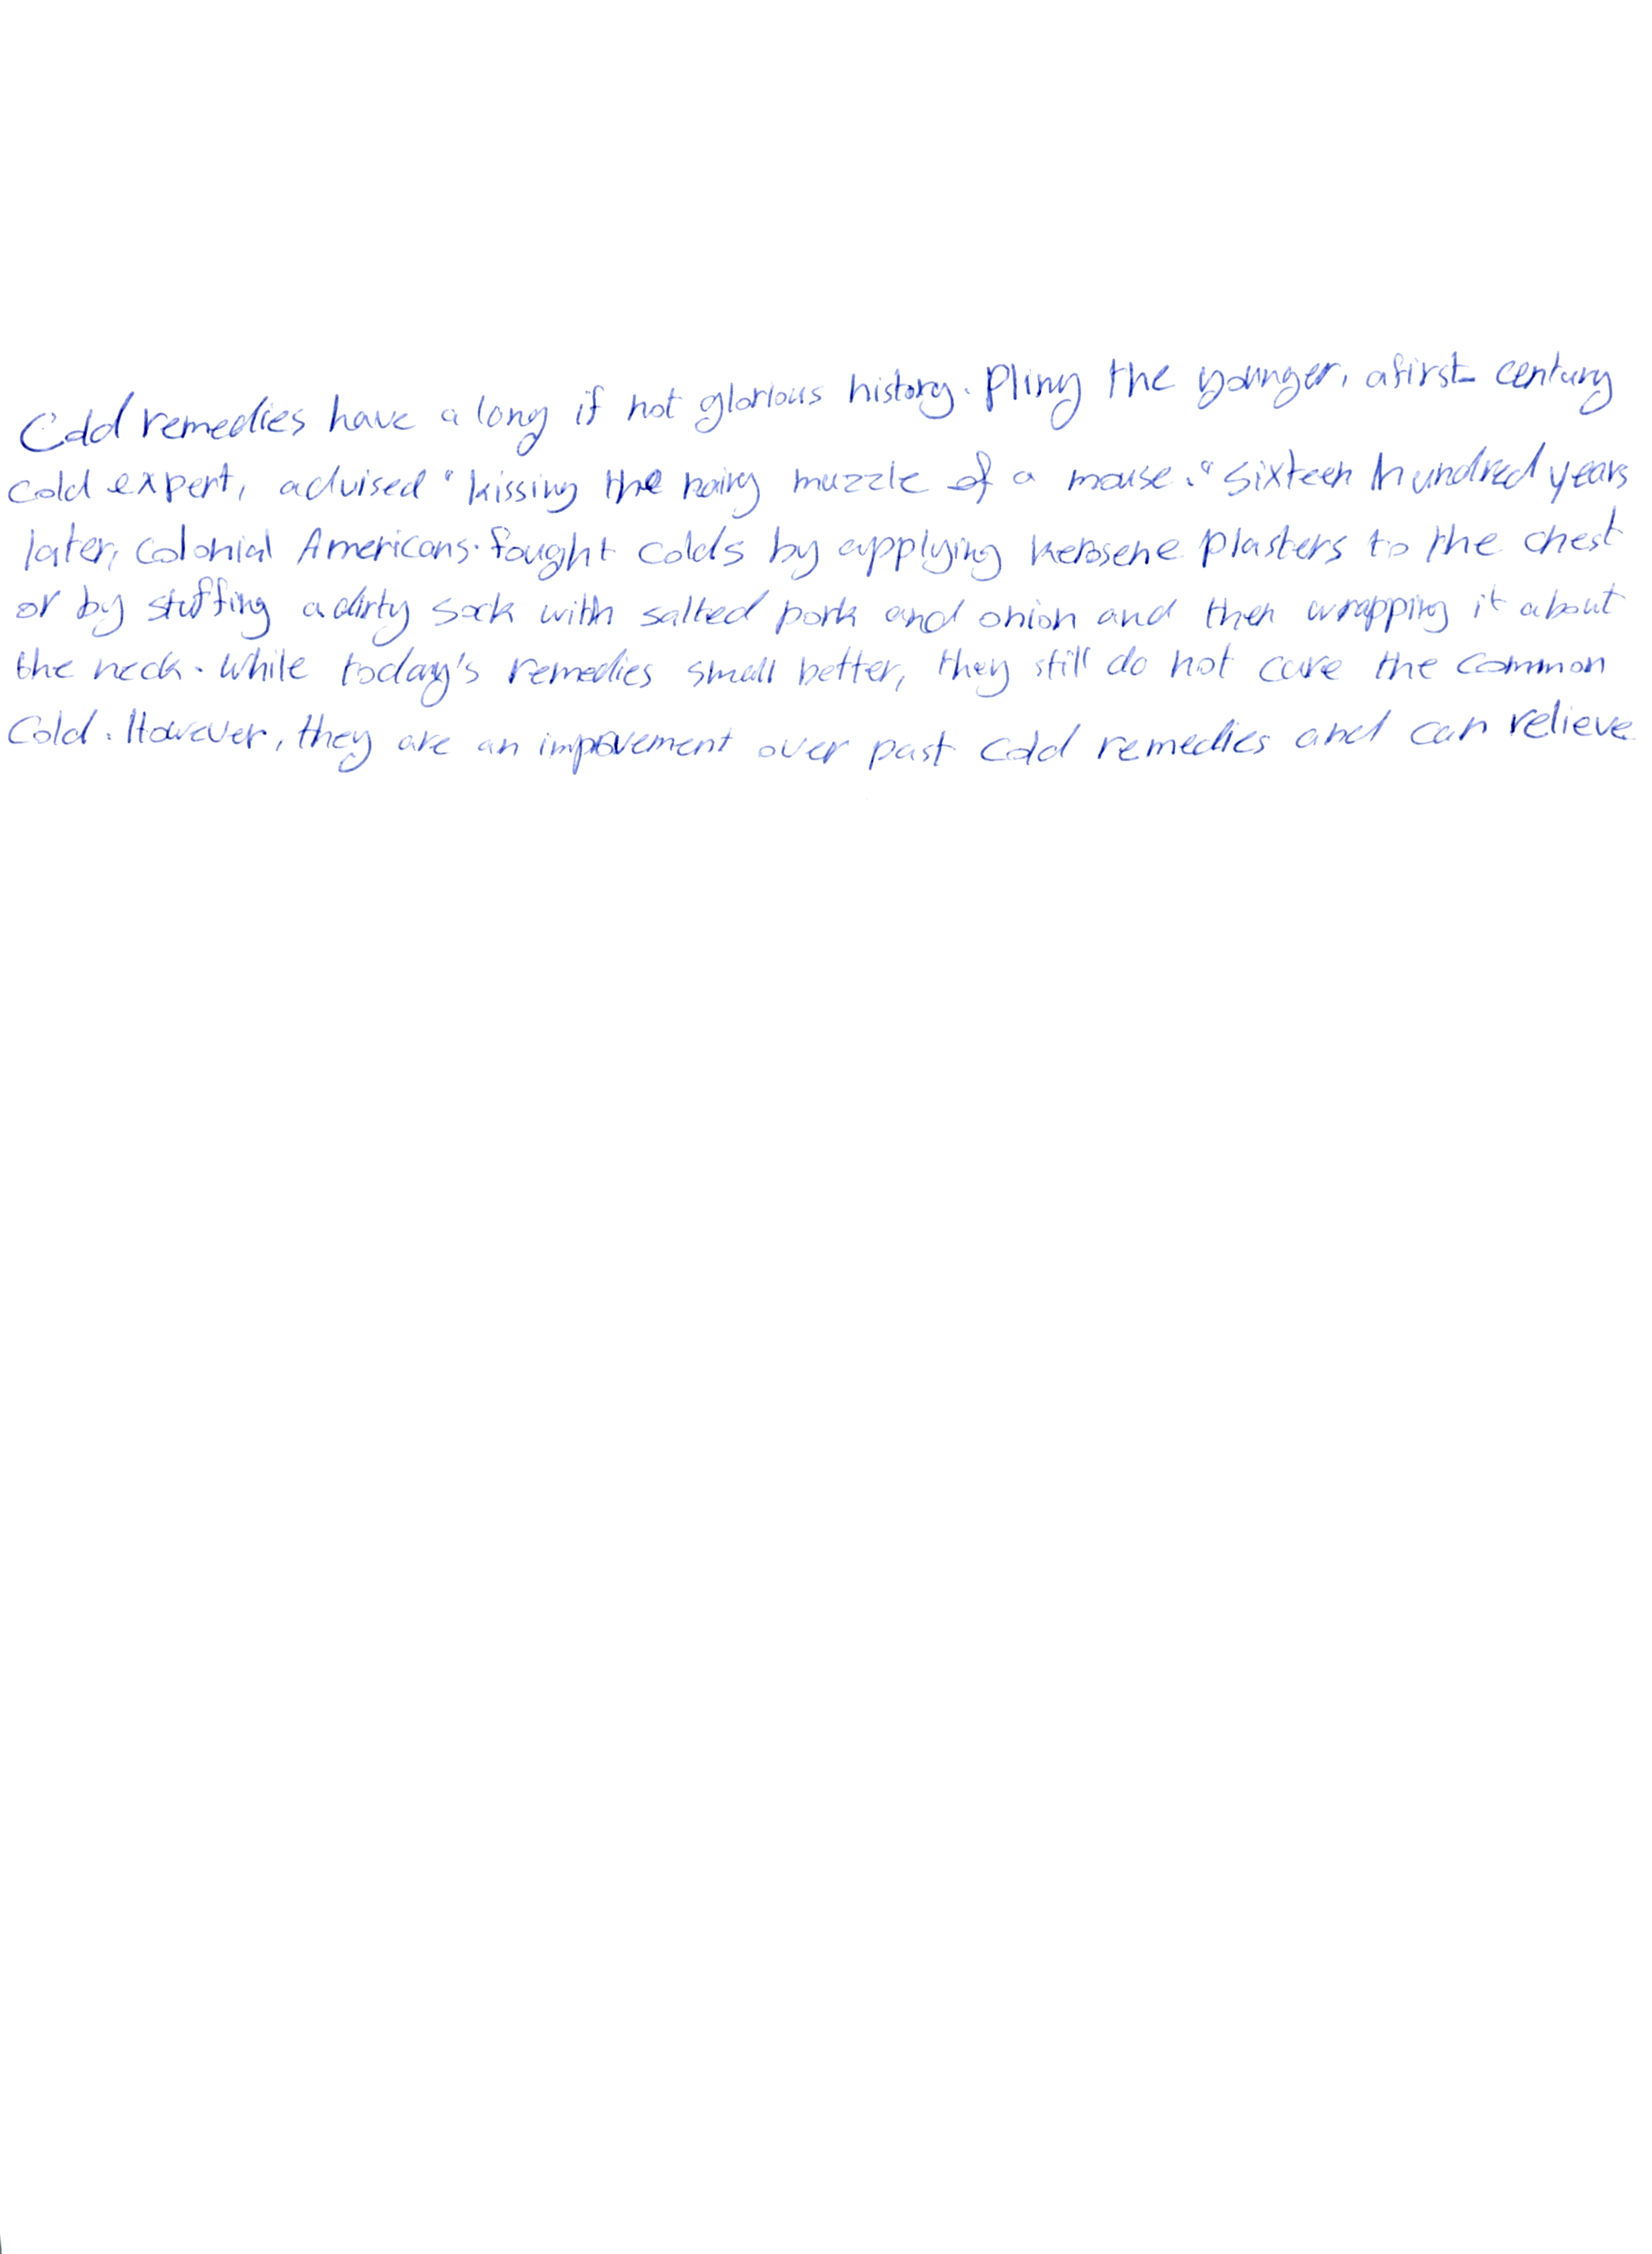 Cold remedies have a long if not glorious history. Pliny the younger, a first-century
cold expert, advised "kissing the hairy muzzle of a mouse." Sixteen hundred years
later, Colonial Americans. fought colds by applying kerosene plasters to the chest
or by stuffing a dirty sock with salted pork and onion and then wrapping it about
the neck. While today's remedies small better, they still do not cure the common
Cold. However, they are an improvement over past cold remedies and can relieve